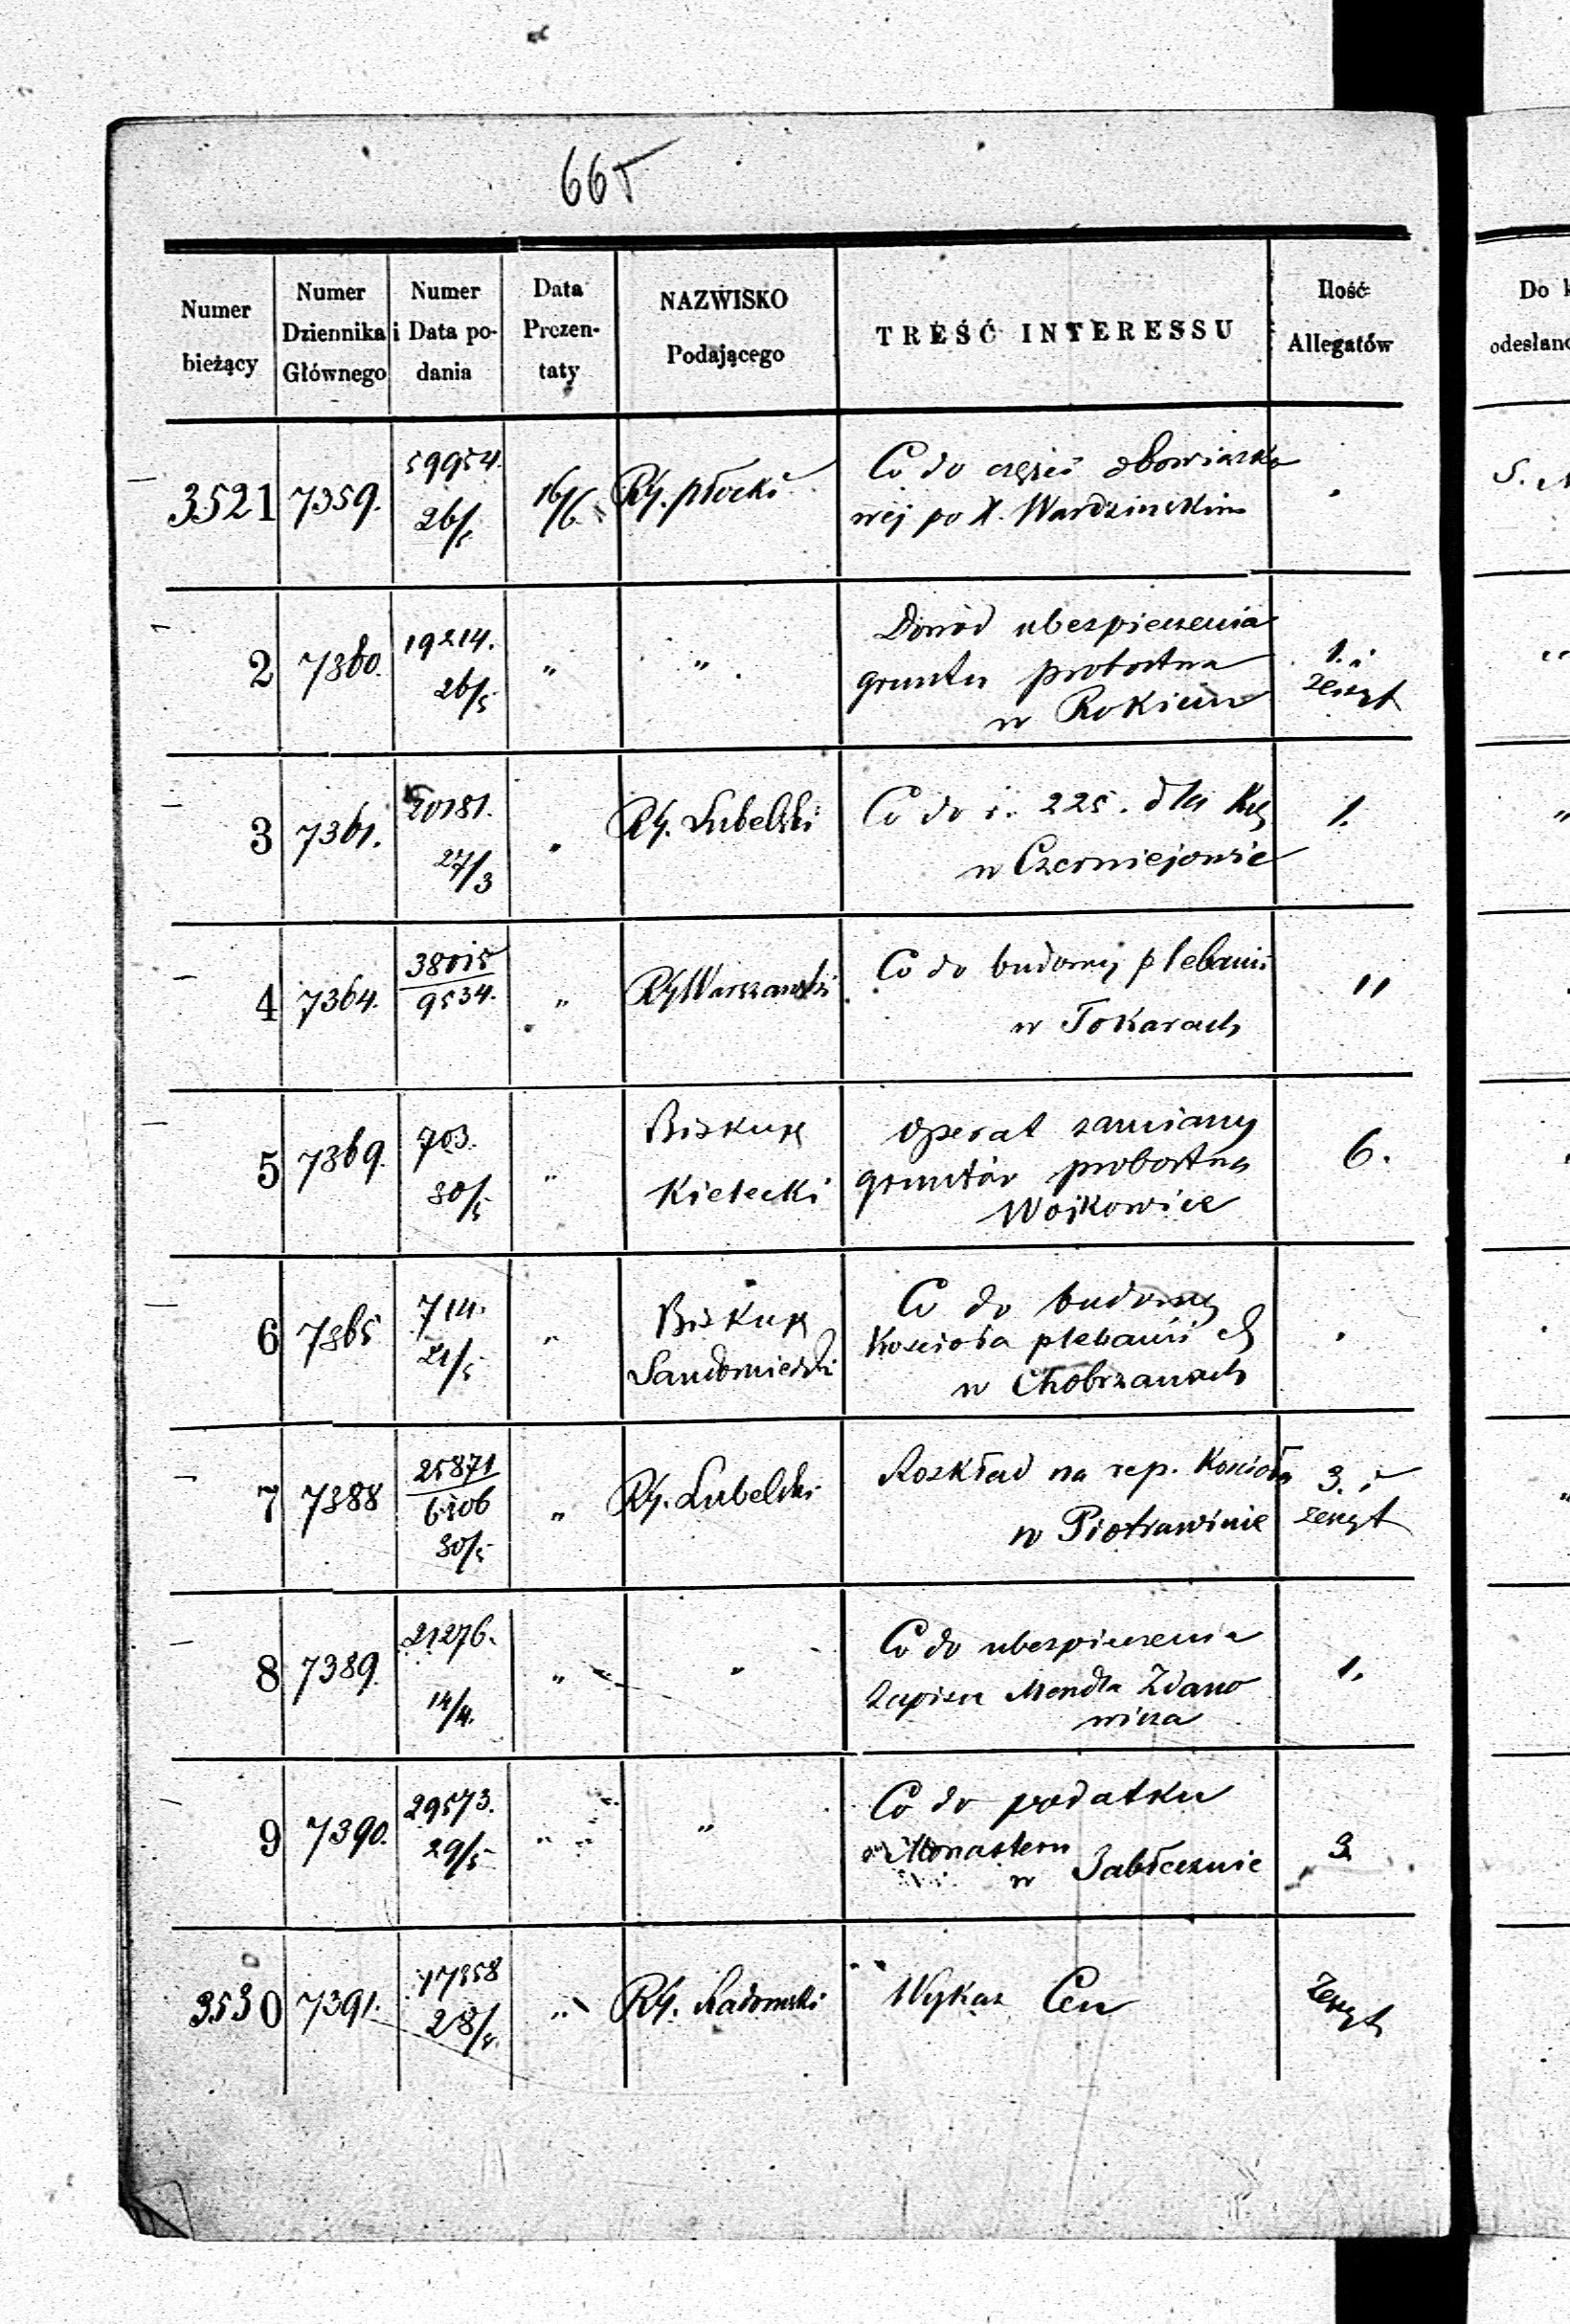 665
Numer bieżący
Numer Dziennika Głównego
Numer i Data podania
Data Prezentaty
NAZWISKO Podającego
TREŚĆ INTERESSU
Ilość Allegatów
3521 7359. 59954. 26/5 16/6 RG. płocki
Co do części obowiązko
wej po X. Wardzińskim
2 7360. 19214. 26/5 " "
Dowód ubezpieczenia
gruntu probostwa
w Rokiciu
1. i
zeszyt
3 7361. 20181. 27/3 " RG. Lubelski
Co do r. 225. dla
w Czerniejowie
1.
4 7364. 38015 9534. " RG Warszawski
Co do budowy plebanii
w Tokarach
"
5 7369. 703. 30/5 " Biskup
Kielecki
Operat zamiany
gruntów probostwa
Wojkowice
6.
6 7365 714. 21/5 " Biskup
Sandomierski
Co do budowy
Kościoła plebanii
w Chobrzanach
7 7388 25871 6506 30/5 " RG. Lubelski
Rozkład na rep. Kościoła
w Piotrawinie
3. i
zeszyt
8 7389. 21276. 14/4. " "
Co do ubezpieczenia
zapisu Mendla Zdano
wicza
1.
9 7390. 29573. 29/5 " "
Co do podatku
Monasteru
w Jabłecznie
3
3530 7391. 17358 28/5. " RG. Radomski
Wykaz Cen
Zeszyt
Do
odesłano
S.